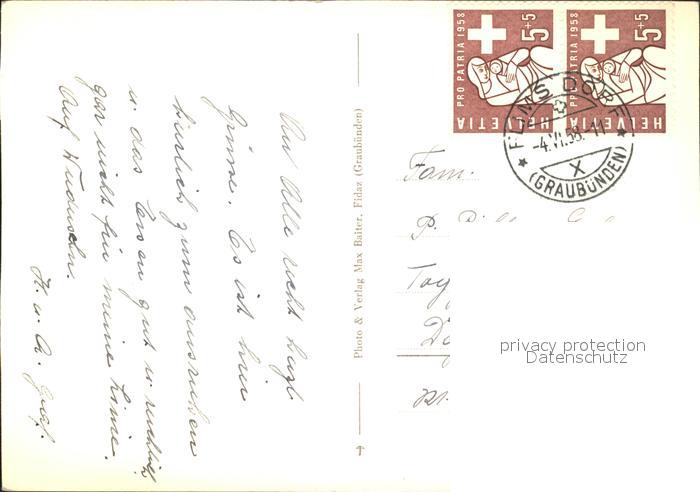 An Alle recht herzl.
Grüsse. Es ist hier
herrlich zum ausruhen
u. das Essen gut u. reichlich
gar nicht für meine Linie.
Auf Wiedersehn.
H. u. A. Graf.
Photo & Verlag Max Baiter, Fidaz (Graubünden)
PRO PATRIA 1958
5+5
HELVETIA
PRO PATRIA 1958
5+5
HELVETIA
FLIMS DORF
-4.VI.58.-11
X
(GRAUBÜNDEN)
Fam.
P.
privacy protection
Datenschutz